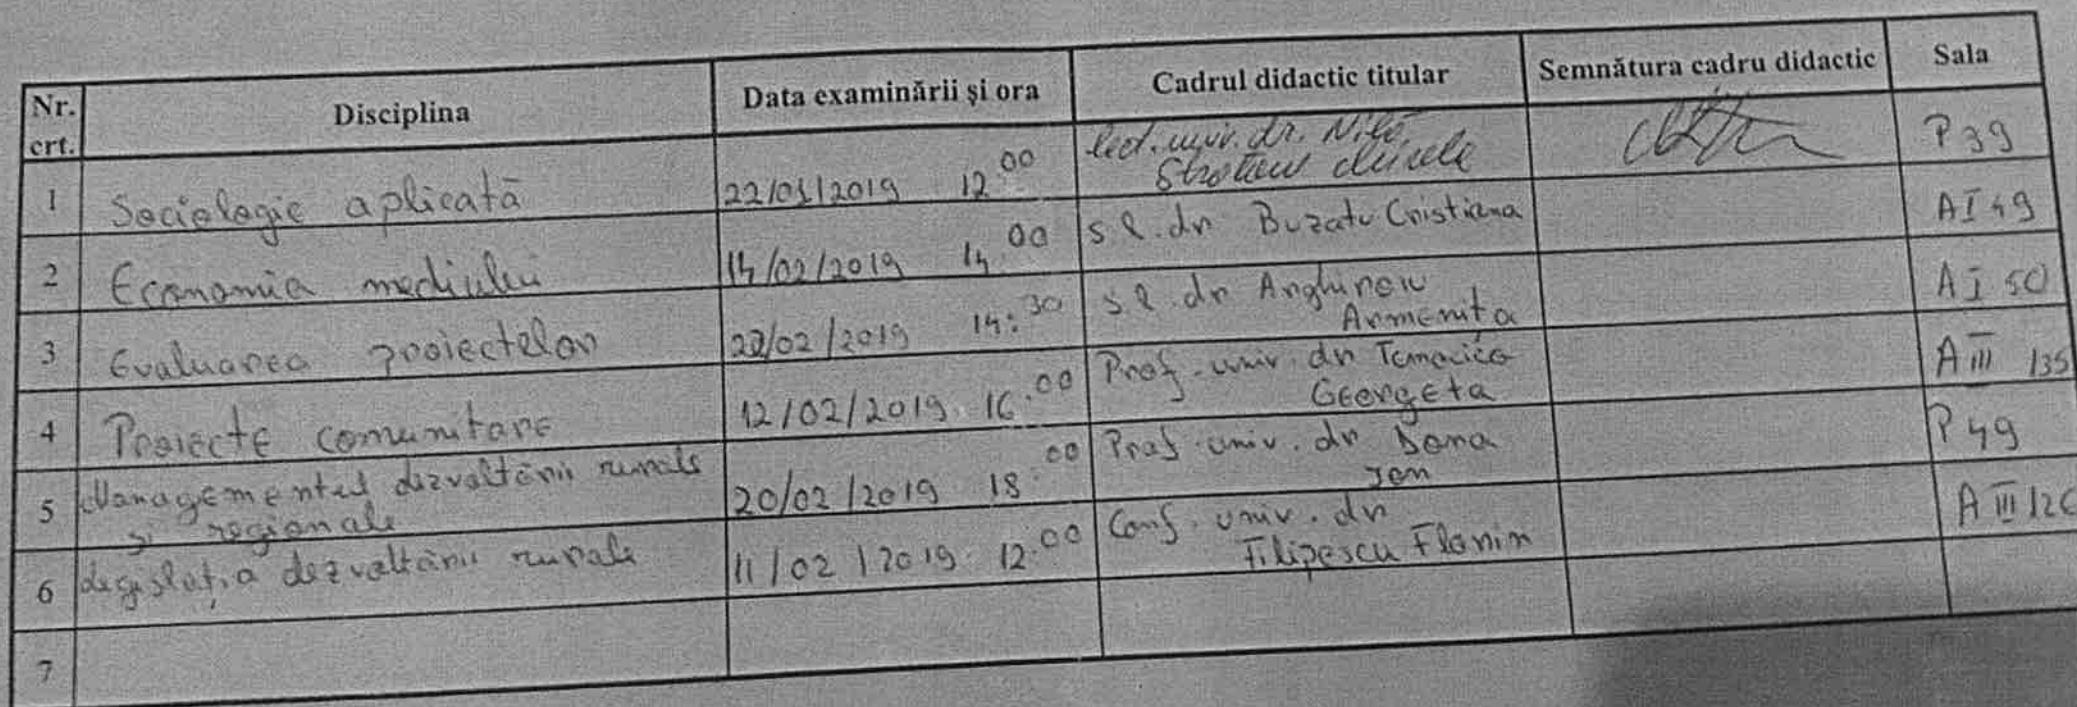 Nr. crt. Disciplina Data examinării și ora Cadrul didactic titular Semnătura cadru didactic Sala
1 Sociologie aplicată 22/01/2019 12 00 lect. univ. dr. P 39
2 Economia mediului 14/02/2019 14 00 s l. dr Buzatu Cristiana AI 49
3 Evaluarea proiectelor 22/02/2019 14:30 s l. dr
Armenița A I 50
4 Proiecte comunitare 12/02/2019 16.00 Prof. univ. dr
Georgeta A III 135
5 Managementul dezvoltării rurale
și regionale 20/02/2019 18:00 Prof univ. dr Dona
Ion P 49
6 Legislația dezvoltării rurale 11/02/2019 12.00 Conf. univ. dr
Filipescu Florin A III 126
7